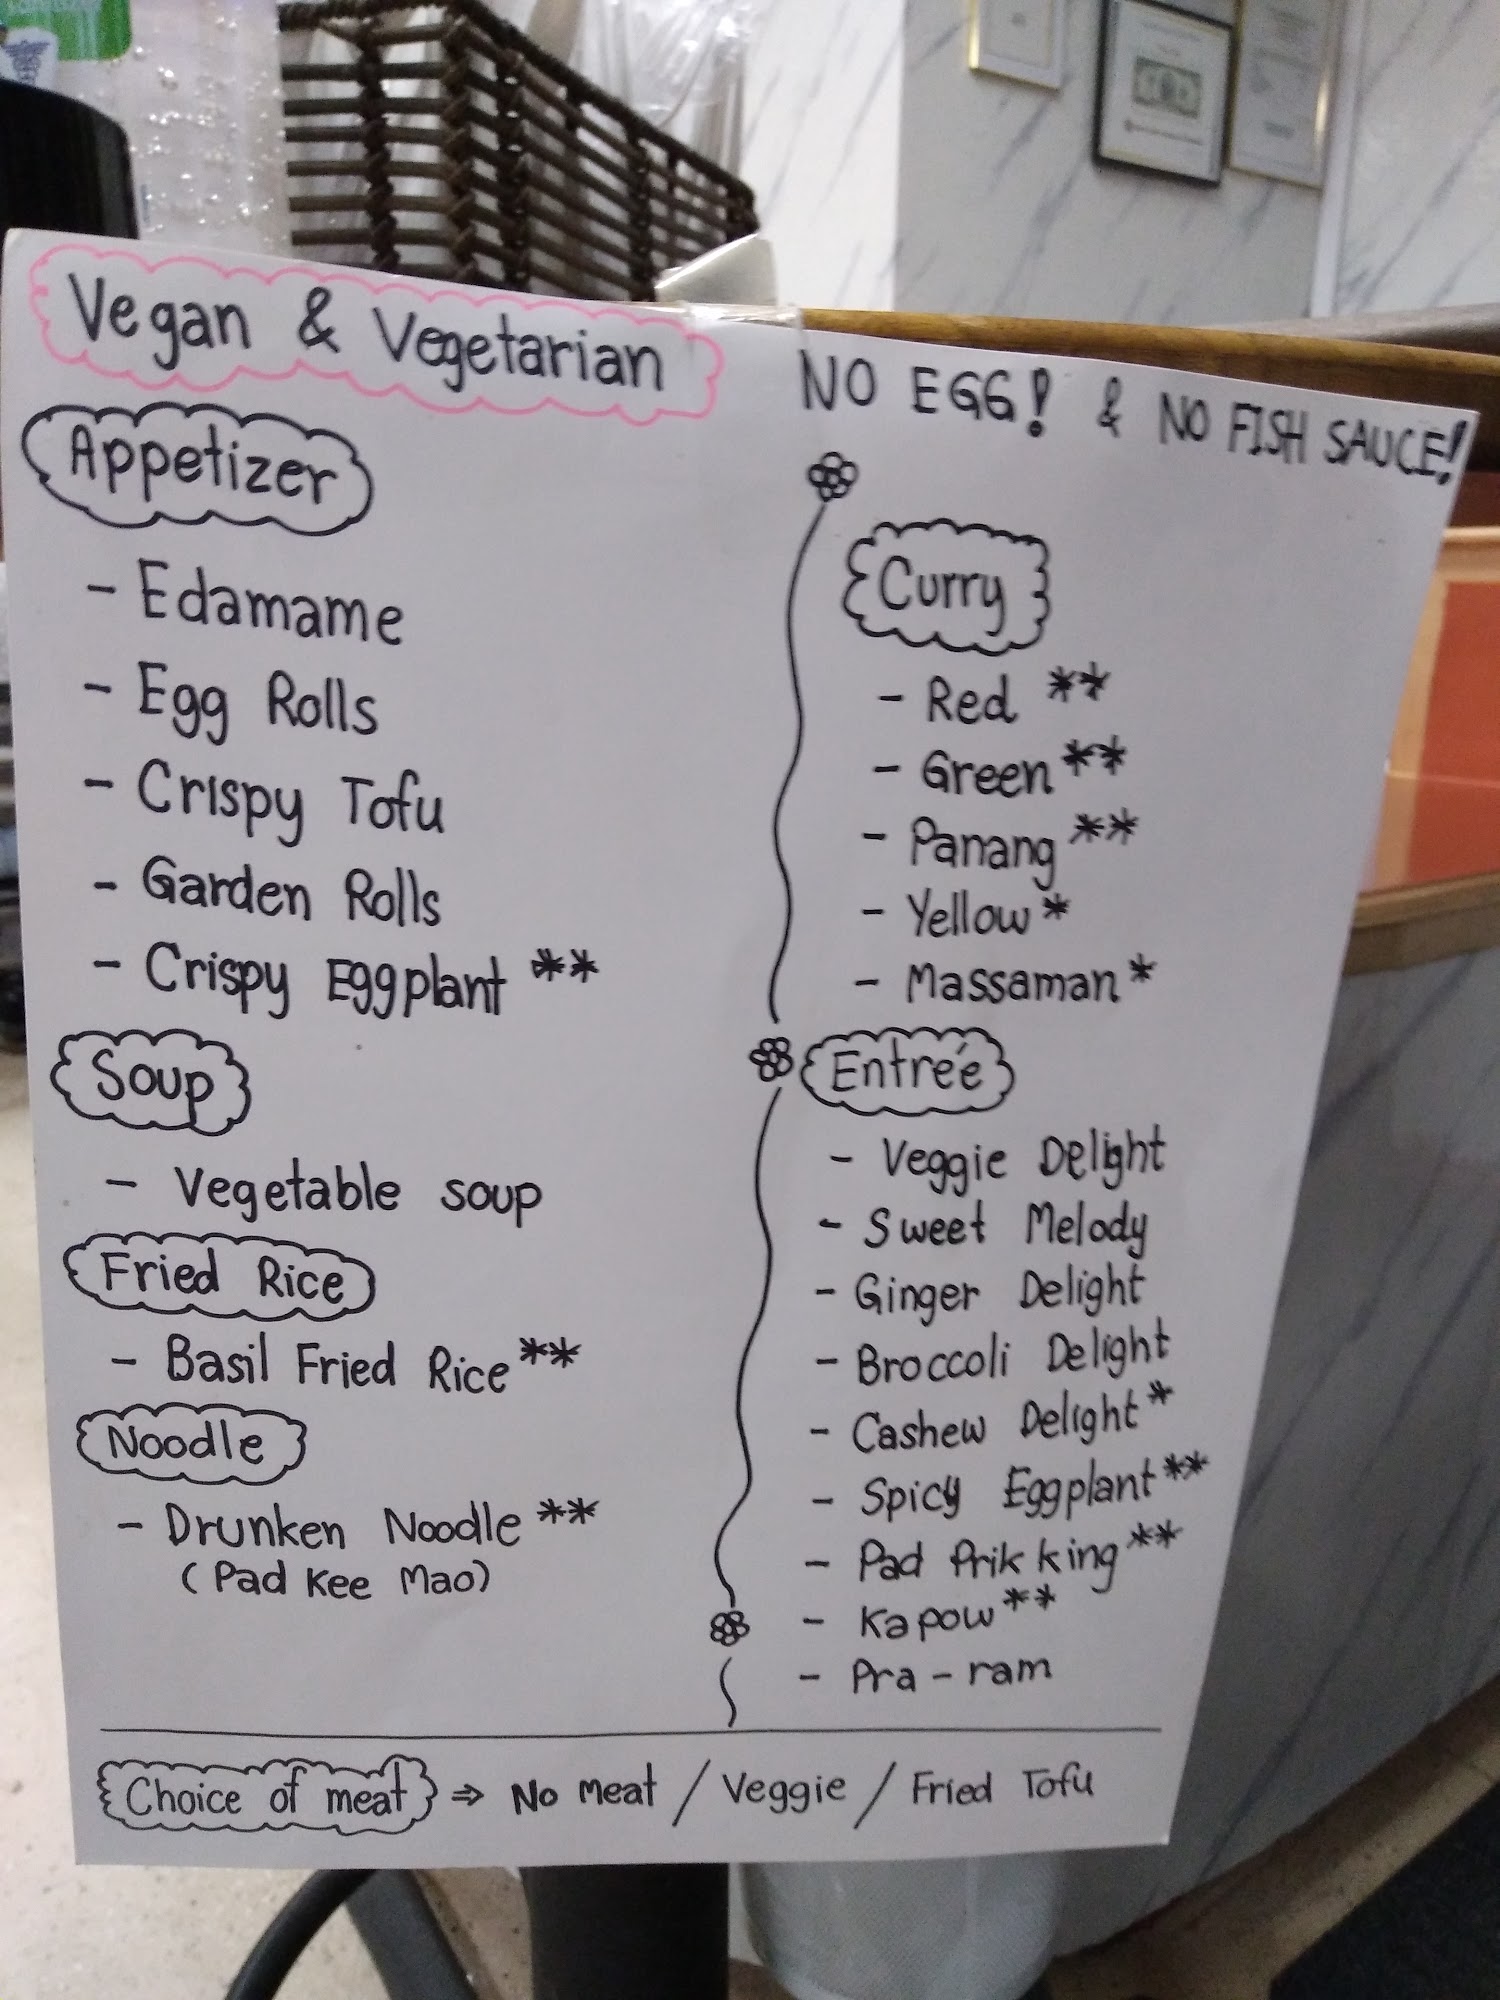 Vegan & Vegetarian
NO EGG! & NO FISH SAUCE!
Appetizer
- Edamame
- Egg Rolls
- Crispy Tofu
- Garden Rolls
- Crispy Eggplant **
Soup
- Vegetable soup
Fried Rice
- Basil Fried Rice **
Noodle
- Drunken Noodle **
(Pad Kee Mao)
Curry
- Red **
- Green **
- Panang **
- Yellow *
- Massaman *
Entréé
- Veggie Delight
- Sweet Melody
- Ginger Delight
- Broccoli Delight
- Cashew Delight *
- Spicy Eggplant **
- Pad Prik king **
- Kapow **
- Pra-ram
Choice of meat ⇒ No meat / Veggie / Fried Tofu